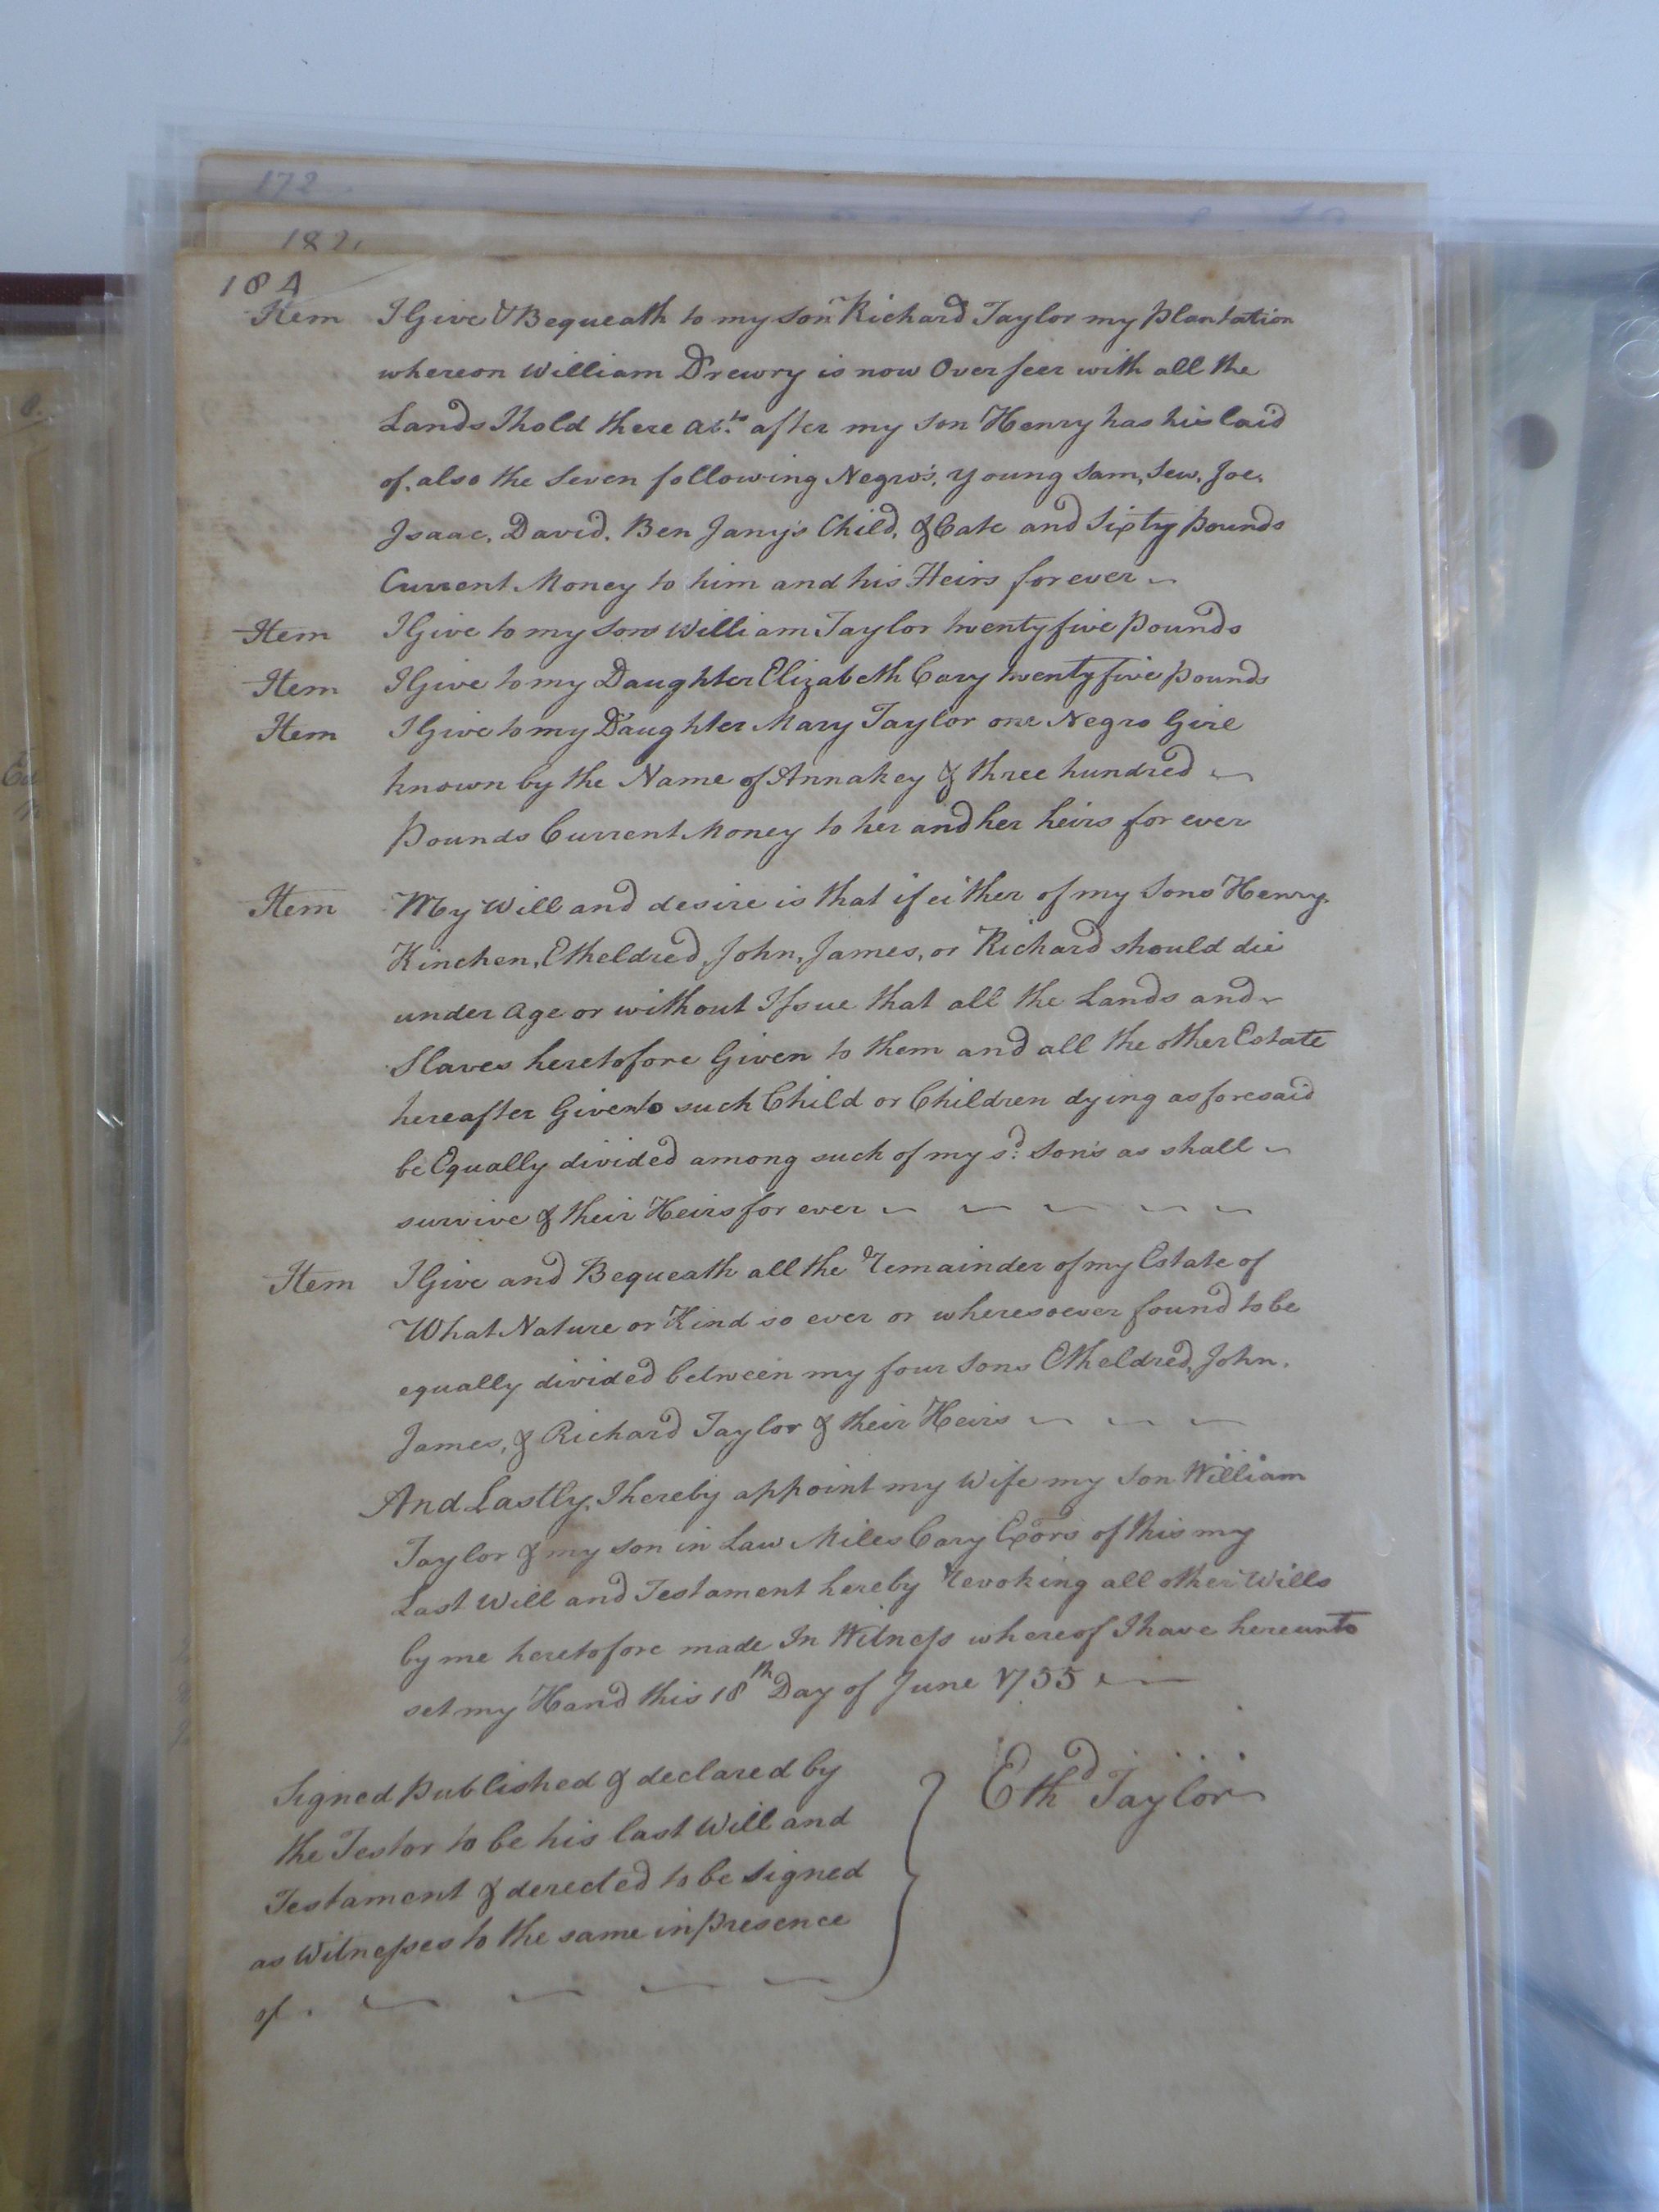 172
182
184
Item I Give & Bequeath to my Son Richard Taylor my Plantation
whereon William Drewry is now Overseer with all the
Lands I hold there after my Son Henry has his laid
of, also the Seven following Negro's, Young Sam, Sew, Joe,
Isaac, David, Ben Jany's Child, & Cate and Sixty Pounds
Current Money to him and his Heirs for ever
Item I Give to my Son William Taylor twenty five Pounds
Item I Give to my Daughter Elizabeth Cary twenty five Pounds
Item I Give to my Daughter Mary Taylor one Negro Girl
known by the Name of Annakey & three hundred
Pounds Current Money to her and her heirs for ever
Item My Will and desire is that if either of my Sons Henry,
Kinchen, Etheldred, John, James, or Richard should die
under Age or without Issue that all the Lands and
Slaves heretofore Given to them and all the other Estate
hereafter Given to such Child or Children dying as foresaid
be Equally divided among such of my sd. Son's as shall
survive & their Heirs for ever
Item I Give and Bequeath all the Remainder of my Estate of
What Nature or Kind so ever or wheresoever found to be
equally divided between my four Sons Etheldred, John,
James, & Richard Taylor & their Heirs
And Lastly, I hereby appoint my Wife my Son William
Taylor & my Son in Law Miles Cary Exors of this my
Last Will and Testament hereby Revoking all other Wills
by me heretofore made In Witness whereof I have hereunto
set my Hand this 18th Day of June 1755
Signed Published & declared by
the Testor to be his last Will and
Testament & derected to be Signed
as Witnesses to the same in Presence
of
Ethd Taylor